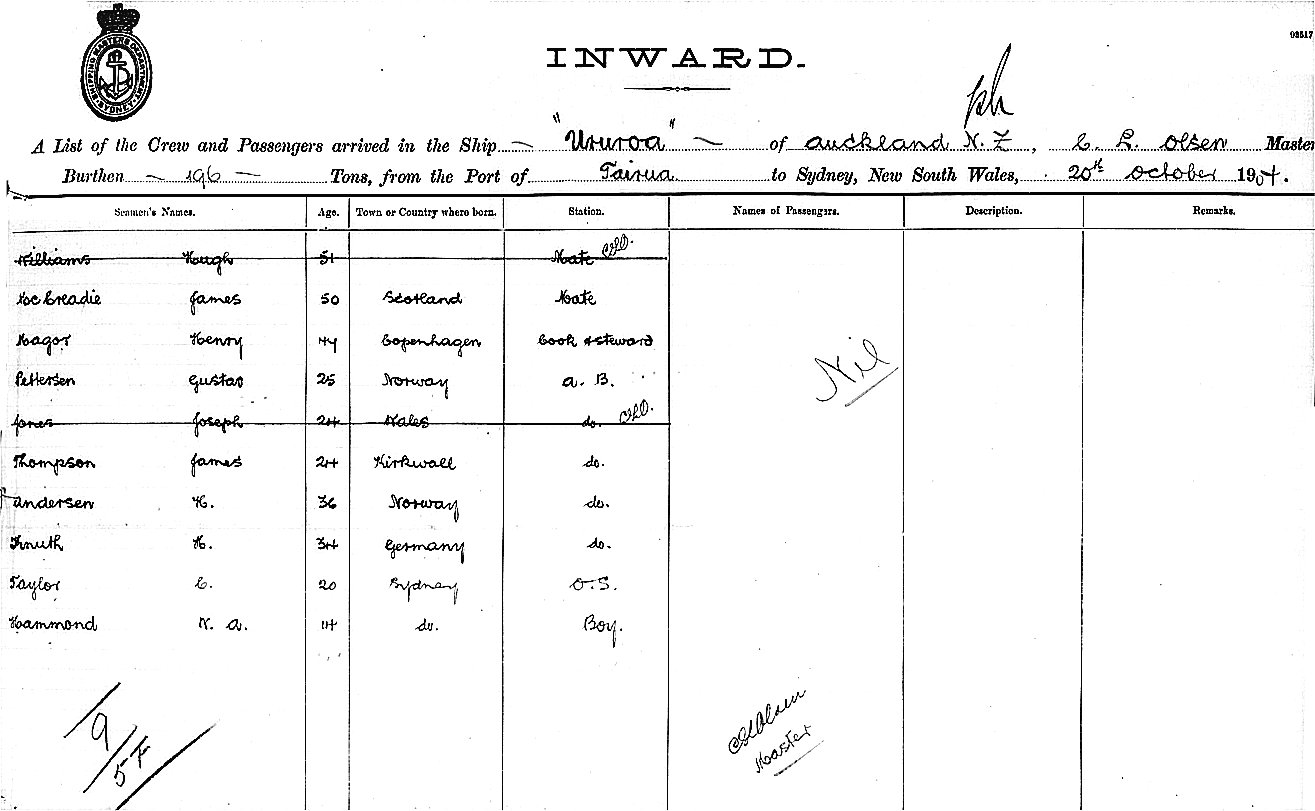 93517
SHIPPING MASTERS DEPARTMENT SYDNEY
INWARD.
A List of the Crew and Passengers arrived in the Ship "Ururoa" of Auckland N. Z, C. L. Olsen Master
Burthen 196 Tons, from the Port of Tairua to Sydney, New South Wales, 20th October 1904.
Seamen's Names. Age. Town or Country where born. Station. Names of Passengers. Description. Remarks.
Williams Hough 51 Mate CLO.
McCreadie James 50 Scotland Mate
Magor Henry 44 Copenhagen Cook & Steward
Pettersen Gustav 25 Norway A. B.
Jones Joseph 24 Wales do. CLO.
Thompson James 24 Kirkwall do.
Andersen H. 36 Norway do.
Knuth H. 34 Germany do.
Taylor C. 20 Sydney O.S.
Hammond W. A. 14 do. Boy.
Nil
9
5F
CLOlsen
Master